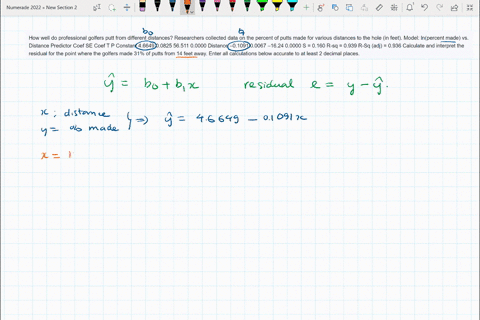 Numerade 2022 > New Section 2
b₀ b₁
How well do professional golfers putt from different distances? Researchers collected data on the percent of putts made for various distances to the hole (in feet). Model: ln(percent made) vs.
Distance Predictor Coef SE Coef T P Constant 4.6649 0.0825 56.511 0.0000 Distance -0.1091 0.0067 -16.24 0.0000 S = 0.160 R-sq = 0.939 R-Sq (adj) = 0.936 Calculate and interpret the
residual for the point where the golfers made 31% of putts from 14 feet away. Enter all calculations below accurate to at least 2 decimal places.
ŷ = b₀ + b₁x residual e = y - ŷ.
x : distance
y = % made } => ŷ = 4.6649 - 0.1091x
x = 1